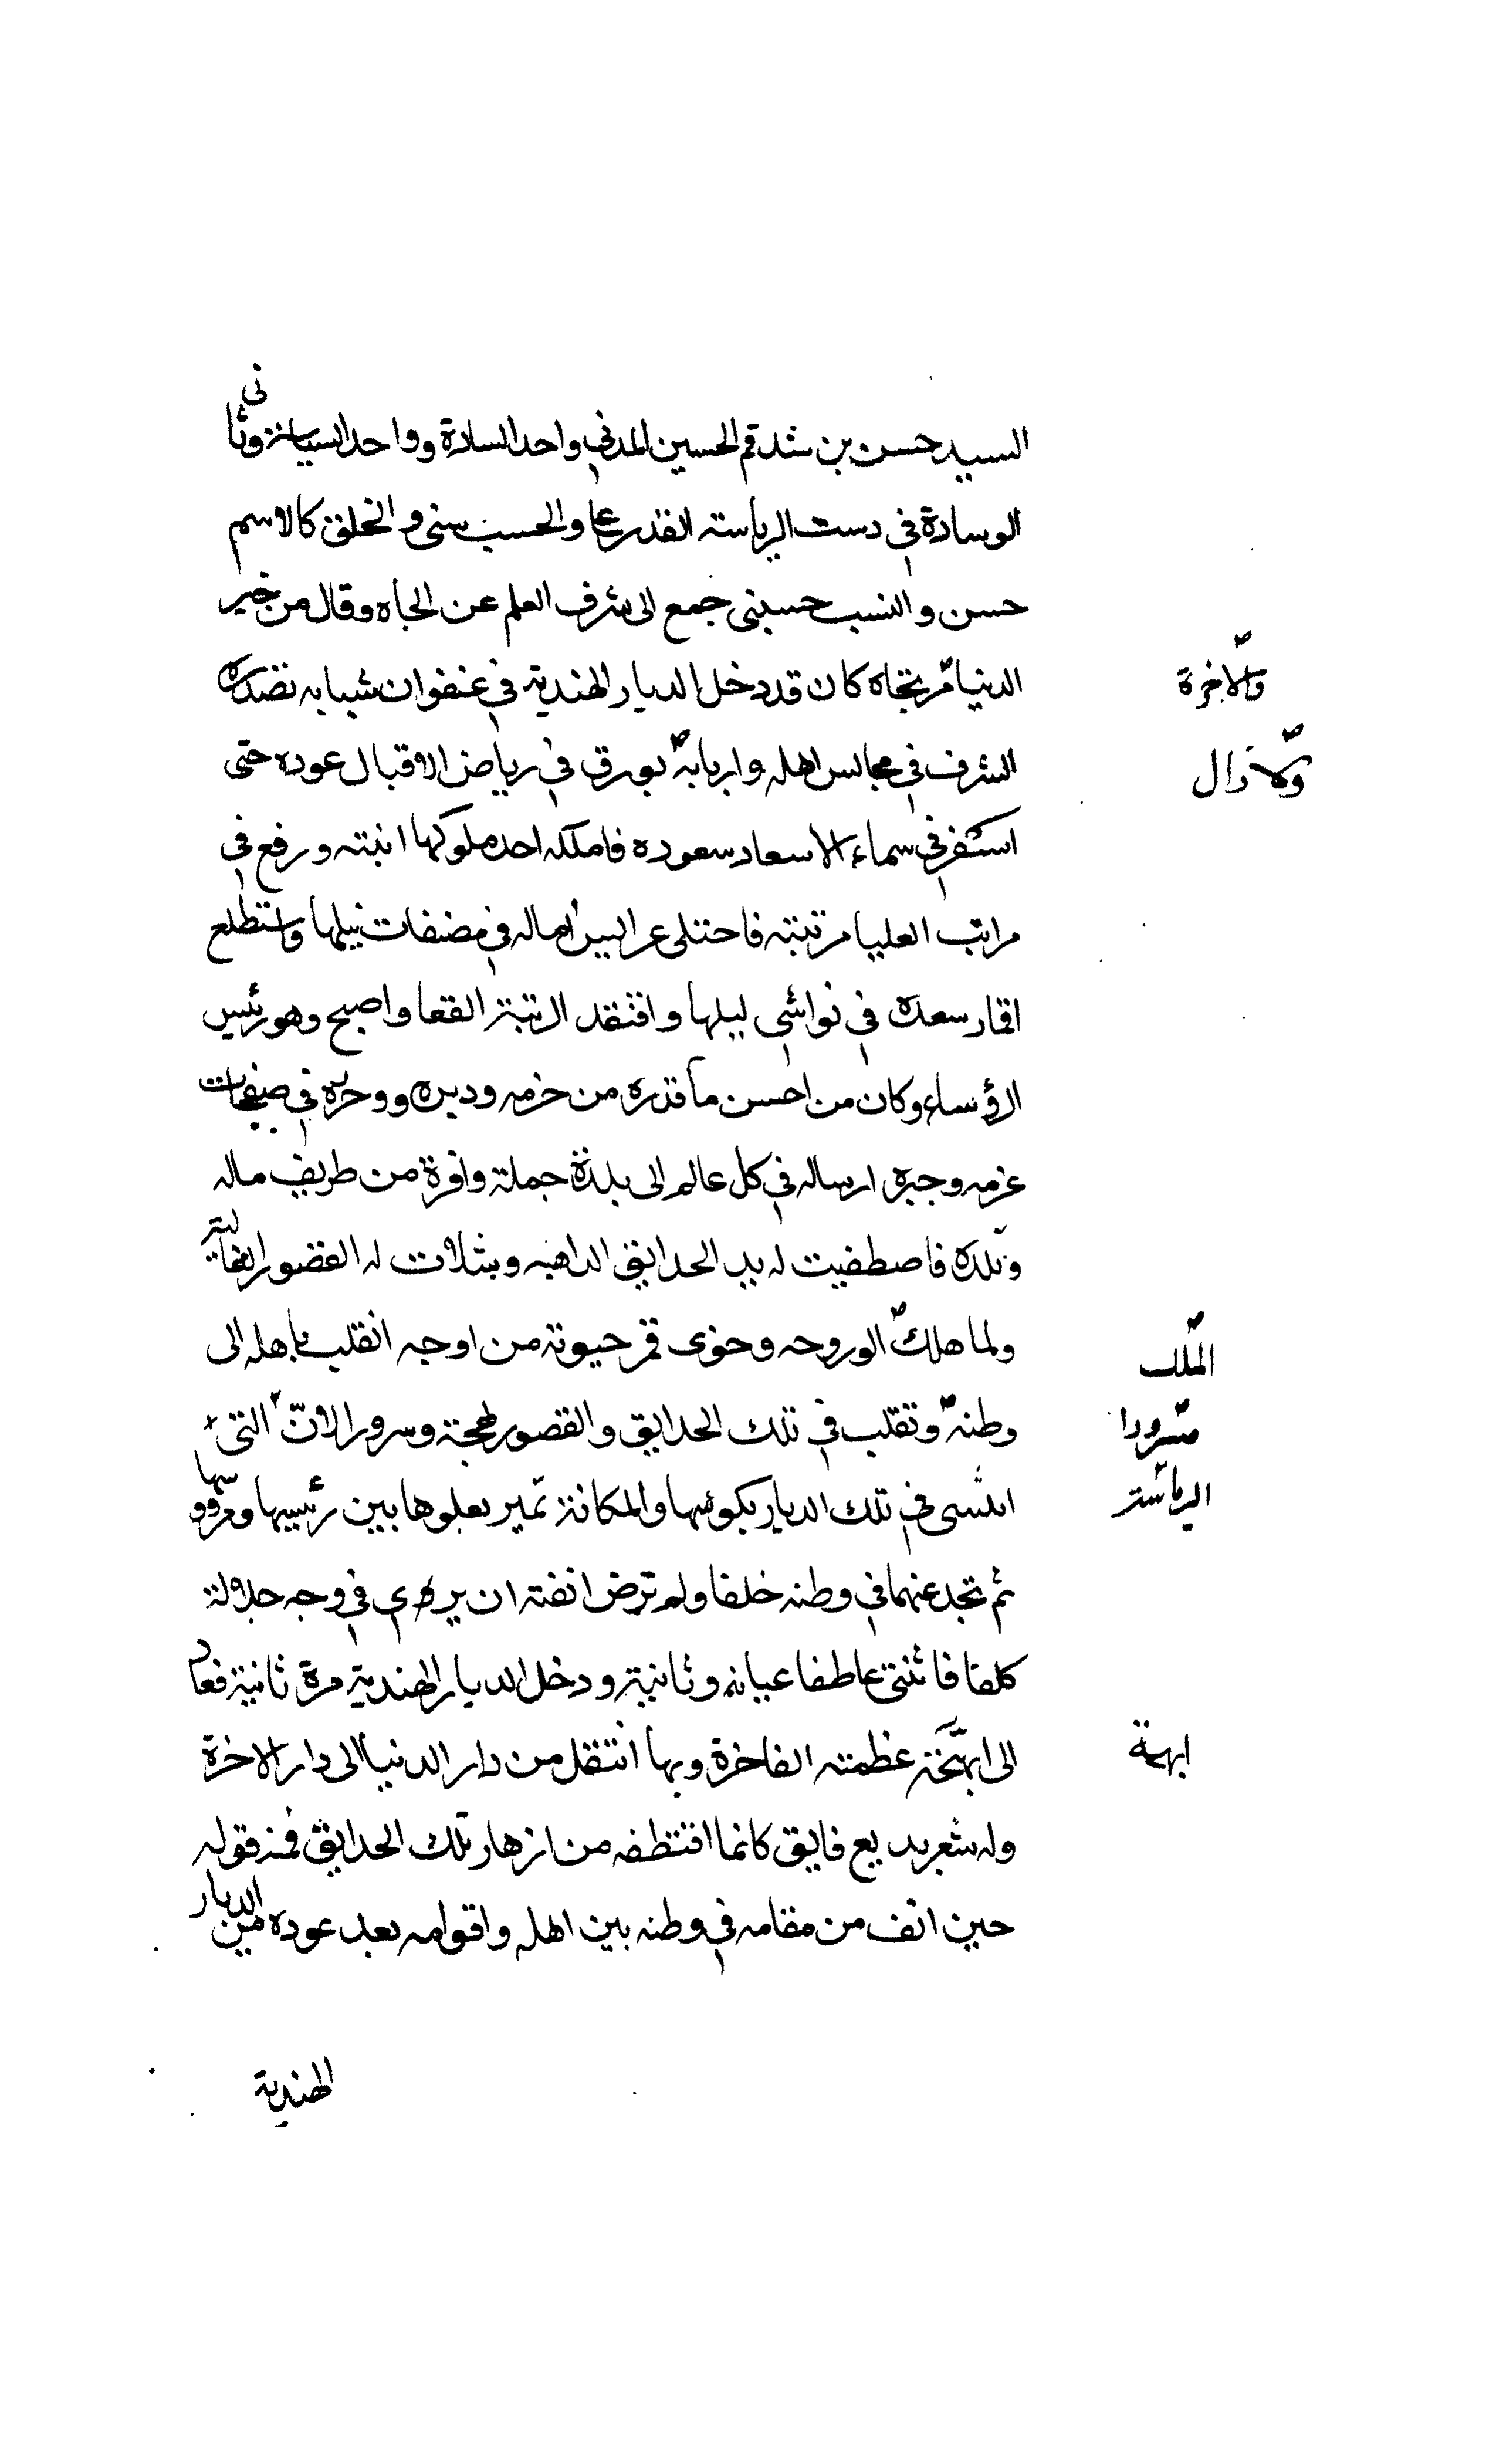 السيد حسن بن شدقم الحسين المدني واحد السادة وواحد السياسة وثاني
الوسادة في دست الرياسة القدر علي والحسب سني والخلق كالاسم
حسن والنسب حسيني جمع الى شرف العلم عن الجاه وقال من خير
الدنيا مرتجاه كان قد دخل الديار الهندية في عنفوان شبابه تصدره
والاخرة
الشرف في مجالس اهله واربابه يورق في رياض الاقبال عوده حتى
ولا زال
استقر في سماء الاسعاد سعوده فاملكه احد ملوكها ابنته ورفع في
مراتب العليا مرتبته فاجتلى عرايس اماله في منصات نيلها واستطلع
اقمار سعده في نواشي ليلها واقتعد الرتبة القعسا واصبح وهو رئيس
الرؤساء وكان من احسن ما قدره من حزمه ودبره وحرره في صفحات
عزمه وحبره ارساله في كل عام الى بلدة جملة وافرة من طريف ماله
وتلده فاصطفيت له بها الحدايق الزاهيه وشيدت له القصور العالية
ولما هلك ابو زوجه وخوى قمر حيوته من اوجه انقلب باهله الى
الملك
وطنه وتقلب في تلك الحدايق والقصور بهجة وسرور الا ان التي
مسرورا
انتشى في تلك الديار بكوئسها والمكانة تميز بعلوها بين رئيسها ومرؤسها
الرياسة
ثم تجد عنهما في وطنه خلفا ولم ترض انفته ان يرى في وجه جلالته
كلفا فانثنى عاطفا عنانه وثانيه ودخل الديار الهندية مرة ثانية فعاد
الى ابهة عظمته الفاخرة وبها انتقل من دار الدنيا الى دار الاخرة
ابهة
وله شعر بديع فايق كانما اقتطفه من ازهار تلك الحدايق فمنه قوله
حين انف من مقامه في وطنه بين اهله واقوامه بعد عوده من الديار
الهندية